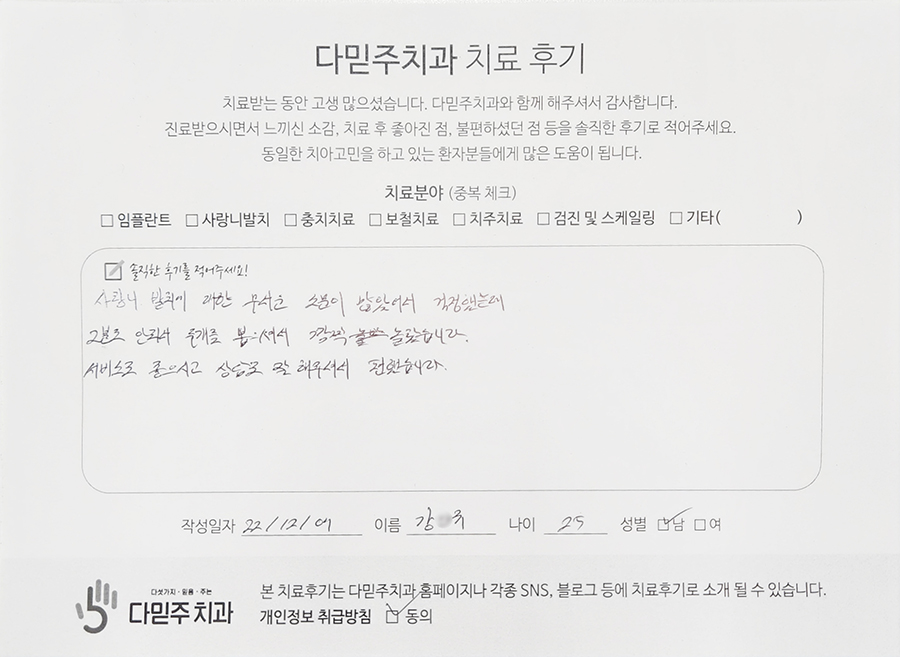 다믿주치과 치료 후기
치료받는 동안 고생 많으셨습니다. 다믿주치과와 함께 해주셔서 감사합니다.
진료받으시면서 느끼신 소감, 치료 후 좋아진 점, 불편하셨던 점 등을 솔직한 후기로 적어주세요.
동일한 치아고민을 하고 있는 환자분들에게 많은 도움이 됩니다.
치료분야 (중복 체크)
□ 임플란트 □ 사랑니발치 □ 충치치료 □ 보철치료 □ 치주치료 □ 검진 및 스케일링 □ 기타( )
☑ 솔직한 후기를 적어주세요!
사랑니 발치에 대한 무서운 소문이 많았어서 걱정했는데
2분도 안돼서 두개를 뽑으셔서 깜짝 놀랐습니다.
서비스도 좋으시고 상담도 잘 해주셔서 편했습니다.
작성일자 22/12/01 이름 강 주 나이 25 성별 ☑남 □여
다섯가지·믿음·주는
다믿주치과
본 치료후기는 다믿주치과 홈페이지나 각종 SNS, 블로그 등에 치료후기로 소개 될 수 있습니다.
개인정보 취급방침 ☑ 동의